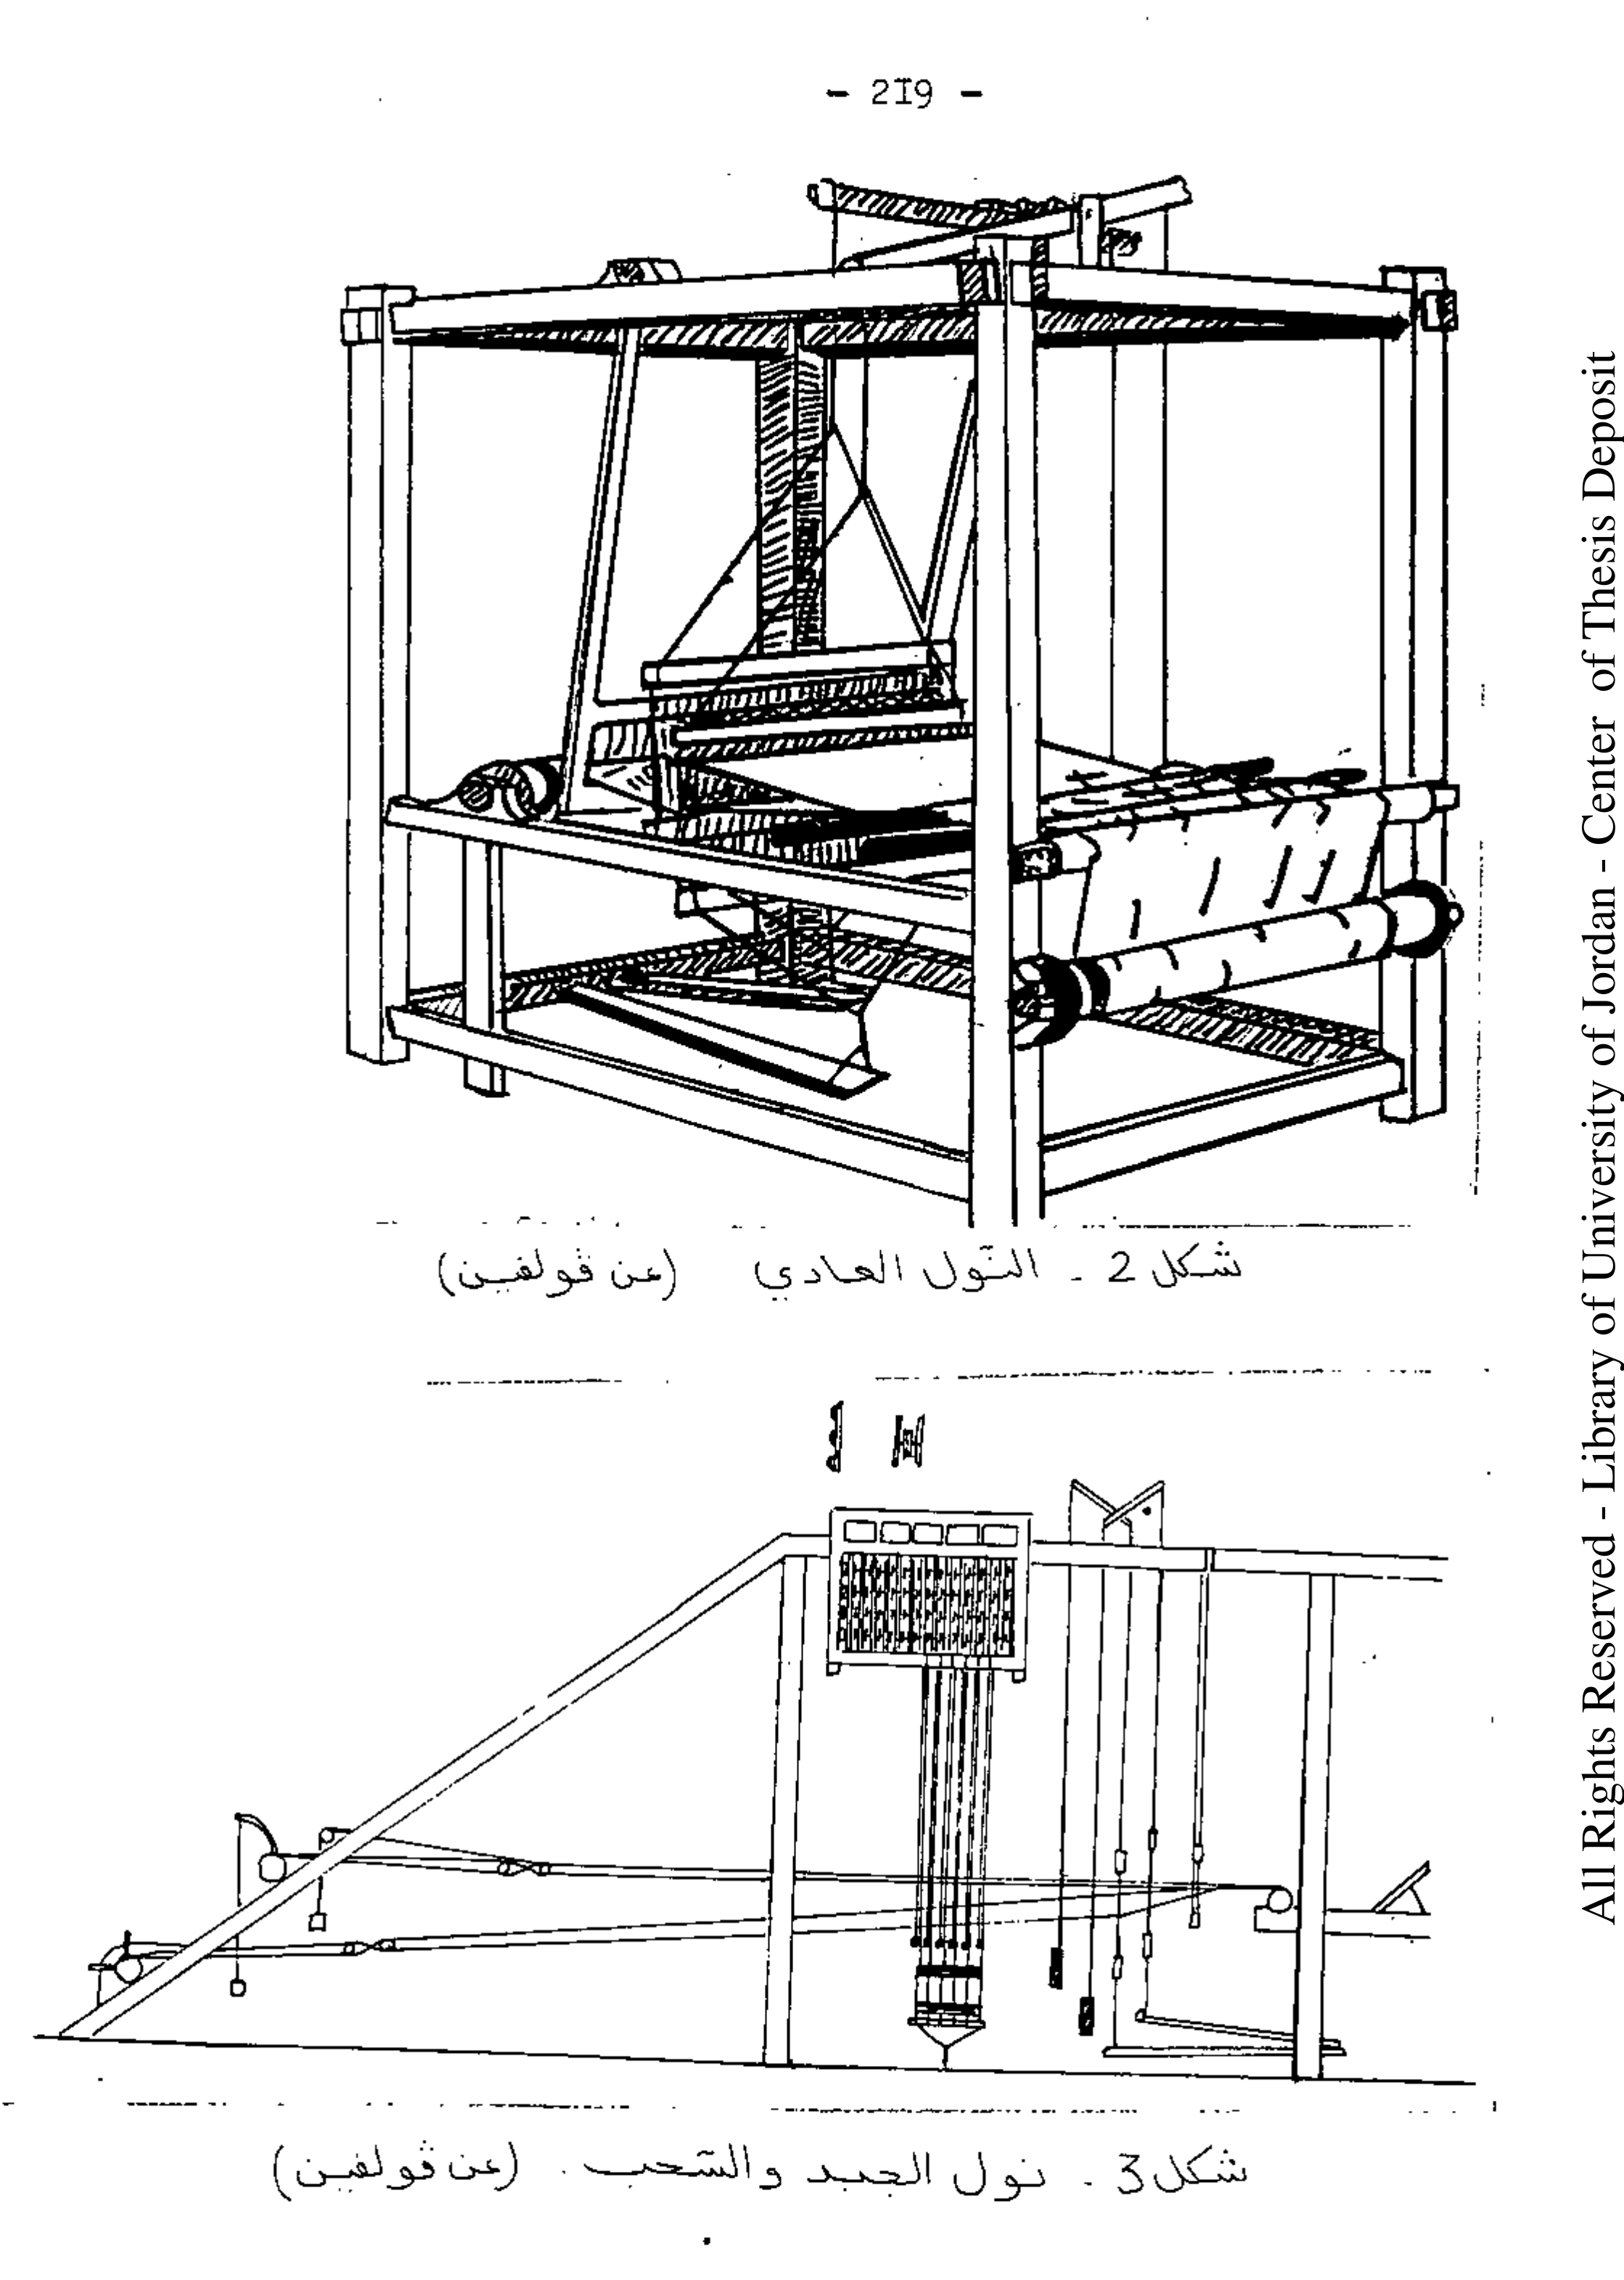 - 219 -
شكل 2 - النّول العادي (عن ڤولفين)
شكل 3 - نول الجبد والسّحب. (عن ڤولفين)
All Rights Reserved - Library of University of Jordan - Center of Thesis Deposit